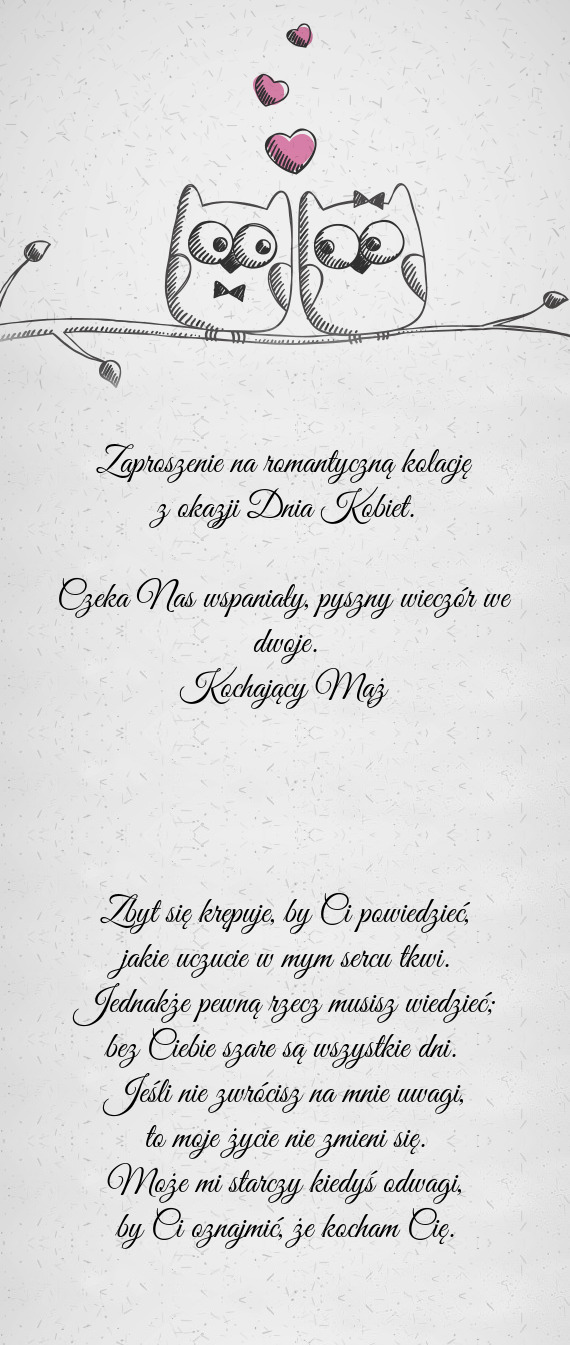 Zaproszenie na romantyczną kolację
z okazji Dnia Kobiet.
Czeka Nas wspaniały, pyszny wieczór we
dwoje.
Kochający Mąż
Zbyt się krępuje, by Ci powiedzieć,
jakie uczucie w mym sercu tkwi.
Jednakże pewną rzecz musisz wiedzieć;
bez Ciebie szare są wszystkie dni.
Jeśli nie zwrócisz na mnie uwagi,
to moje życie nie zmieni się.
Może mi starczy kiedyś odwagi,
by Ci oznajmić, że kocham Cię.